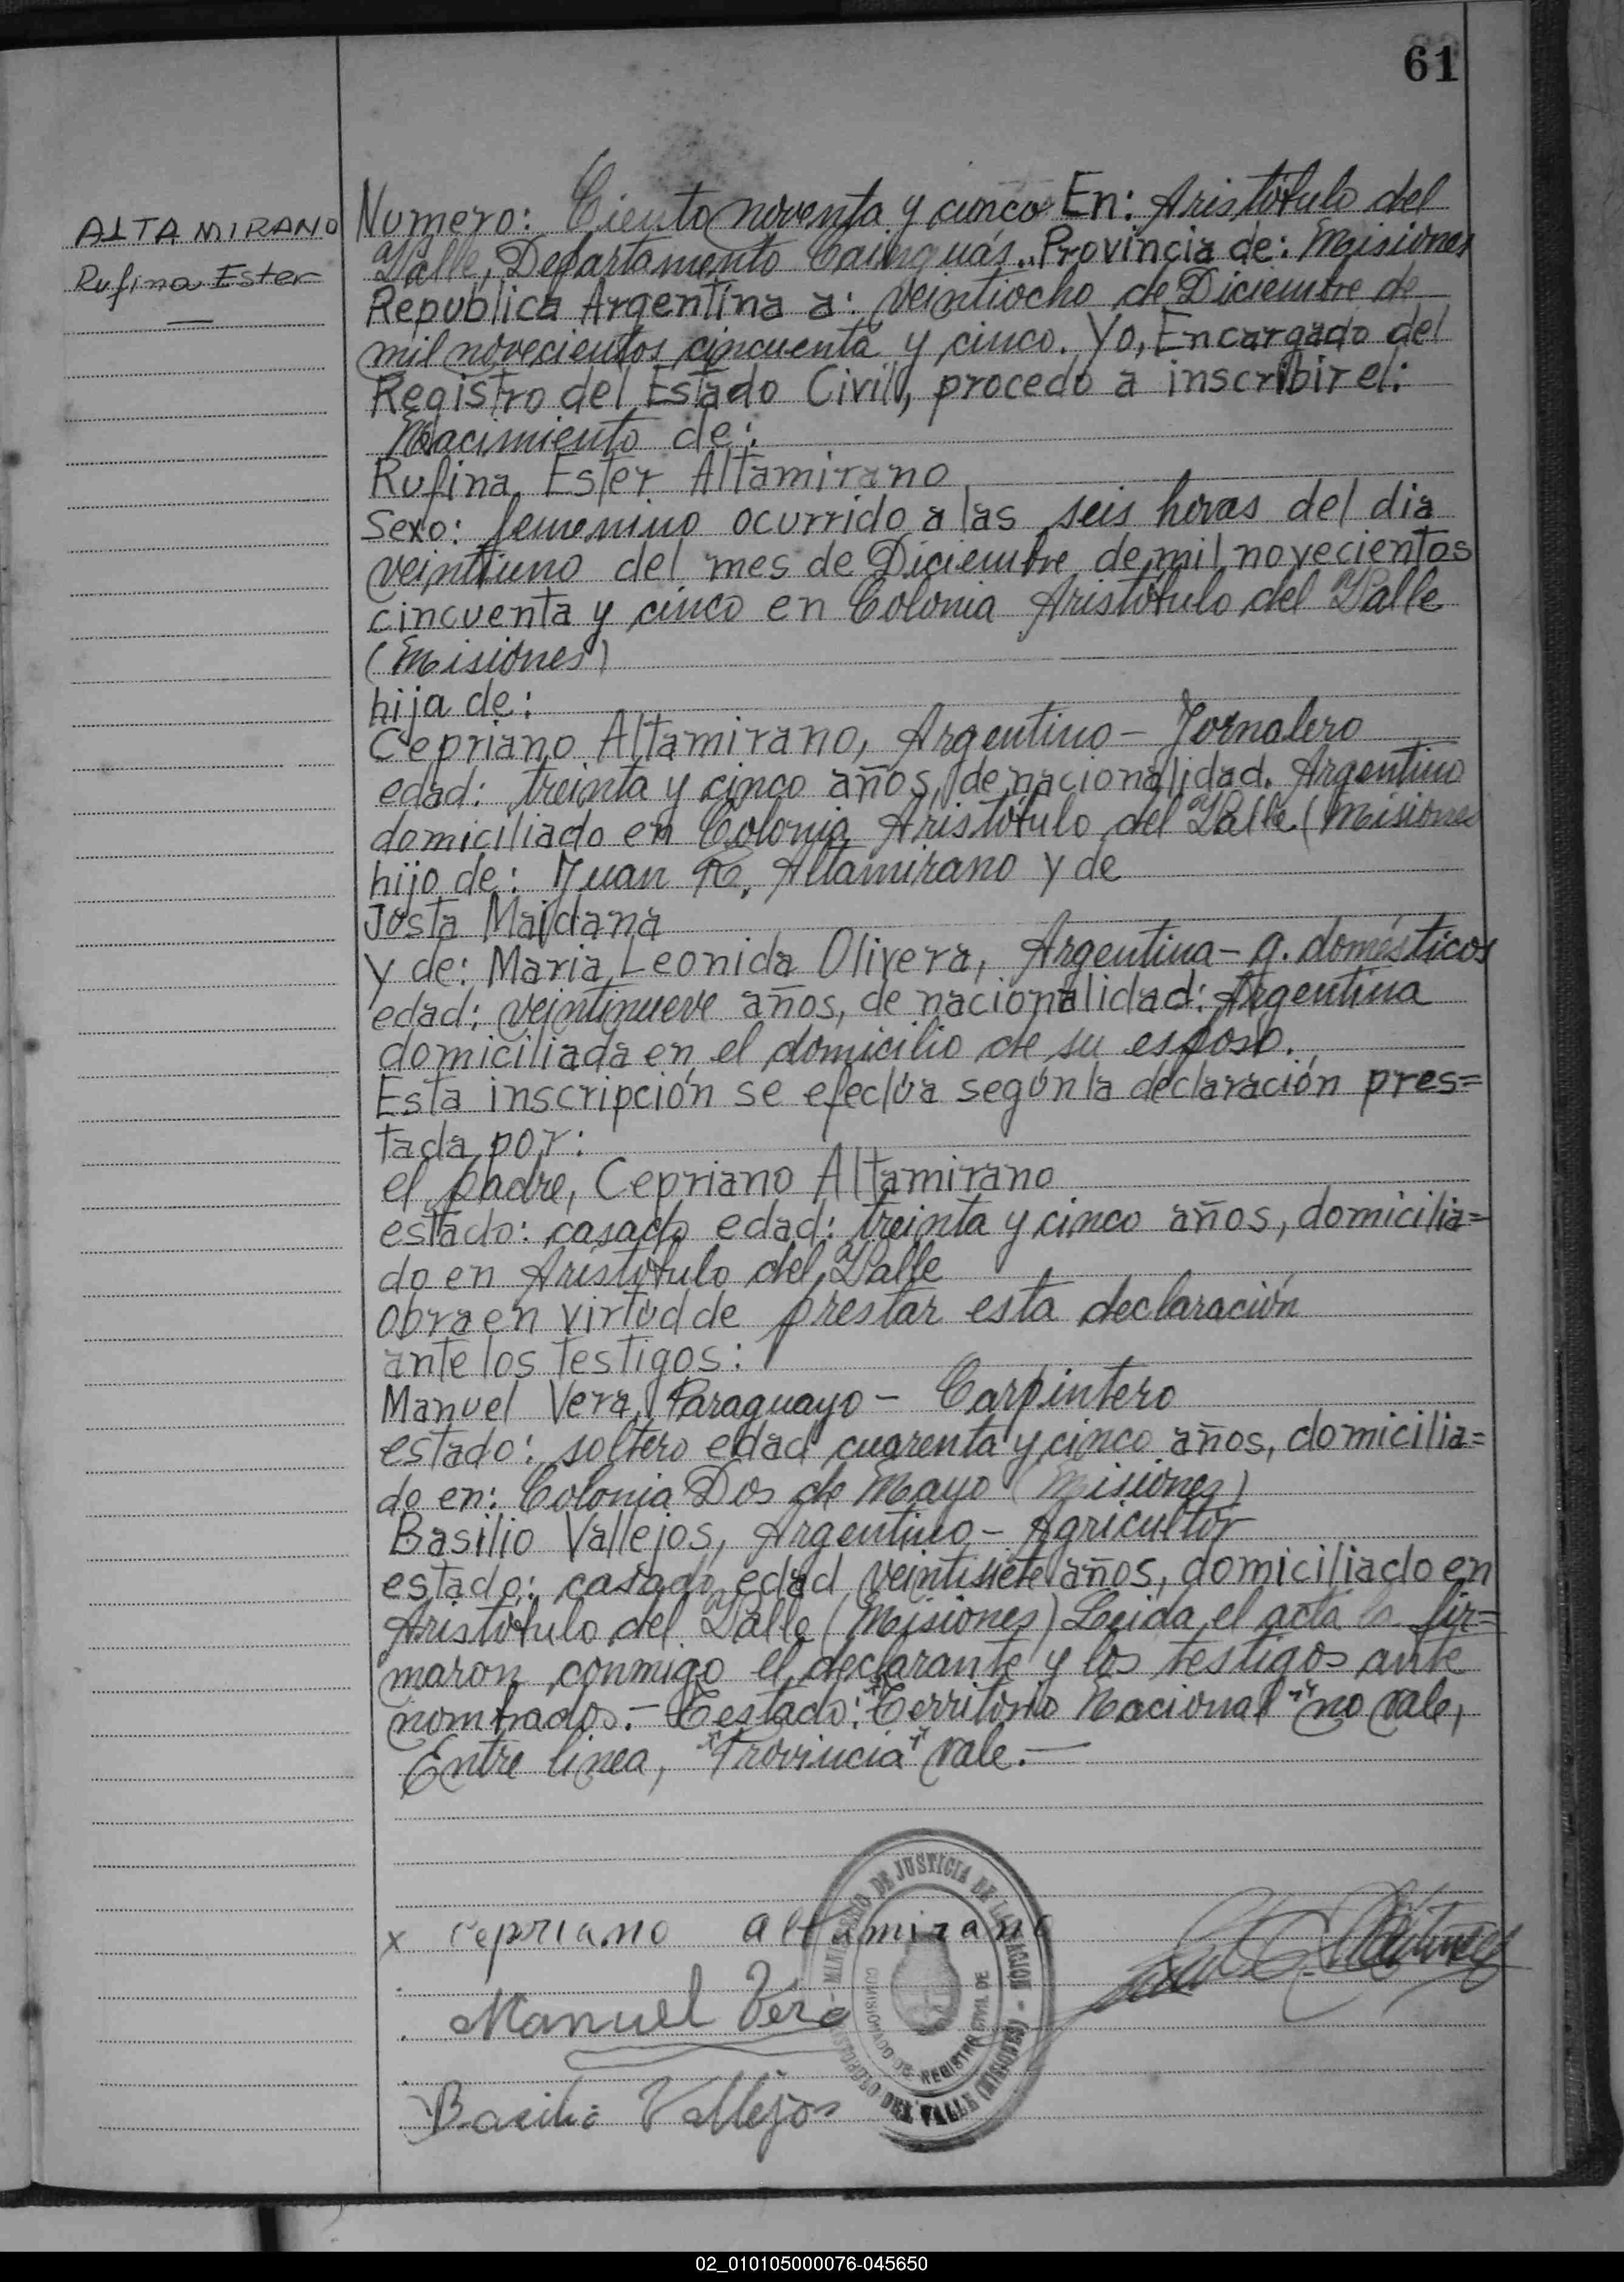 61
ALTAMIRANO
Rufina Ester
Numero: Ciento noventa y cinco En: Aristóbulo del
Valle, Departamento Cainguás.. Provincia de: Misiones
Republica Argentina a: veintiocho de Diciembre de
mil novecientos cincuenta y cinco. Yo, Encargado del
Registro del Estado Civil, procedo a inscribir el:
Nacimiento de:
Rufina Ester Altamirano
Sexo: femenino ocurrido a las seis horas del dia
veintiuno del mes de Diciembre de mil novecientos
cincuenta y cinco en Colonia Aristóbulo del Valle
(Misiones)
hija de:
Cepriano Altamirano, Argentino - Jornalero
edad: treinta y cinco años, de nacionalidad. Argentino
domiciliado en Colonia Aristóbulo del Valle (Misiones
hijo de: Juan R. Altamirano y de
Justa Maidana
y de: Maria Leonida Olivera, Argentina - q. domésticos
edad: veintinueve años, de nacionalidad: Argentina
domiciliada en el domicilio de su esposo.
Esta inscripción se efectúa según la declaración pres=
tada por:
el padre, Cepriano Altamirano
estado: casado edad: treinta y cinco años, domicilia=
do en Aristóbulo del Valle
obra en virtud de prestar esta declaración
ante los testigos:
Manuel Vera, Paraguayo - Carpintero
estado: soltero edad cuarenta y cinco años, domicilia=
do en: Colonia Dos de Mayo (Misiones)
Basilio Vallejos, Argentino - Agricultor
estado: casado edad veintisiete años, domiciliado en
Aristóbulo del Valle (Misiones) Leida el acta la fir=
maron conmigo el declarante y los testigos ante
nombrados.- Testado: "Territorio Nacional" no vale,
Entre linea, "Provincia" vale.-
x cepriano altamirano
Manuel Vera
Basilio Vallejos
MINISTERIO DE JUSTICIA DE LA NACION
REGISTRO CIVIL DE
DEL VALLE (MISIONES)
02_010105000076-045650